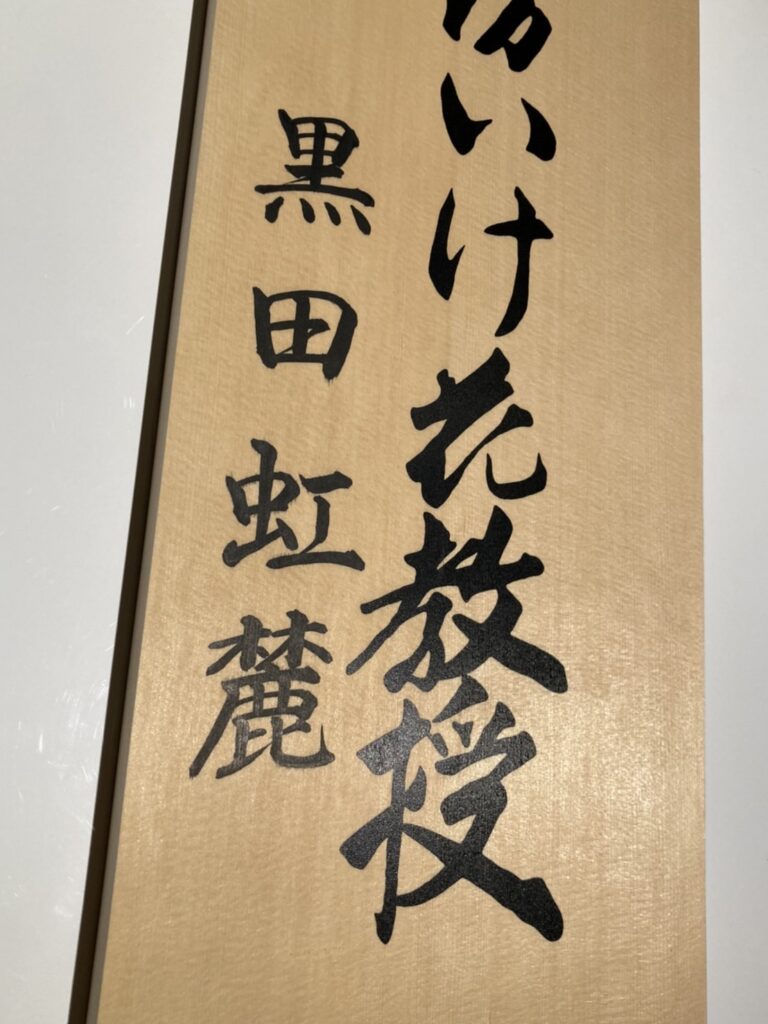 いけ花教授
黒田虹麓